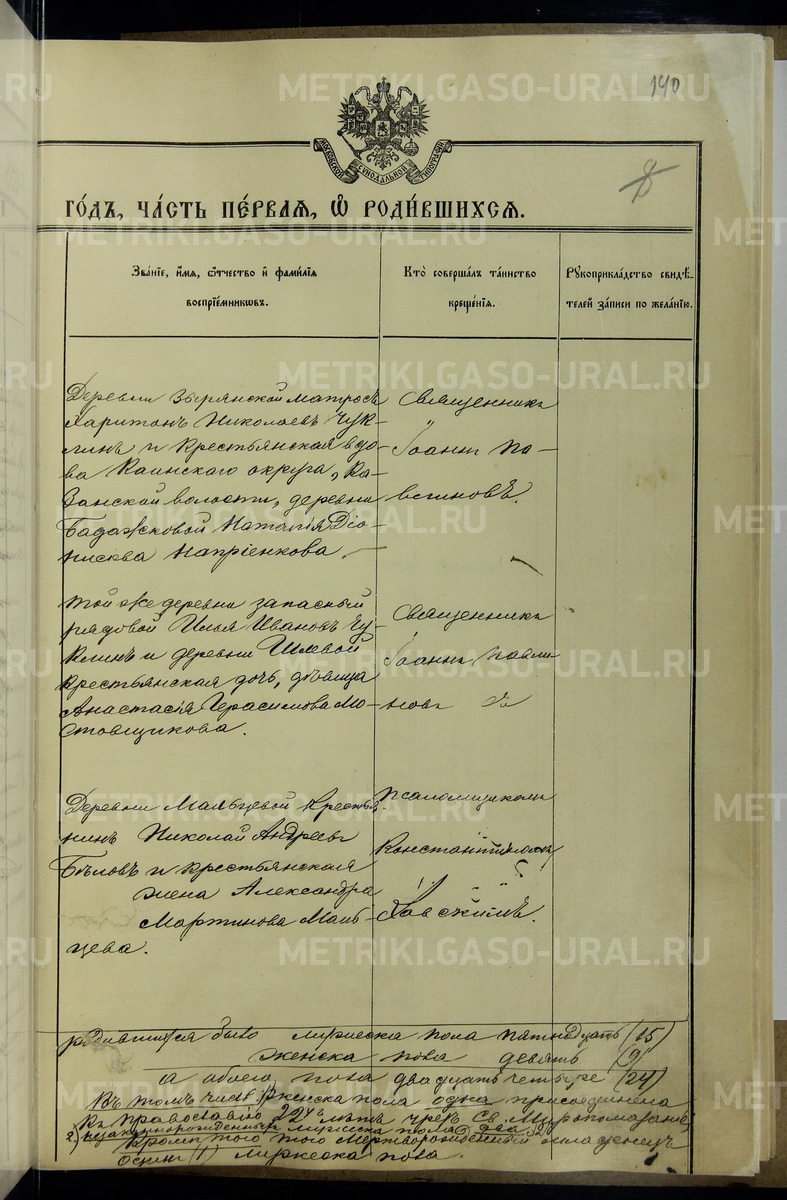 140
МОСКОВСКОЙ СѴНОДАЛЬНОЙ ТИПОГРАФІИ
8
ГО́ДЪ, ЧА́СТЬ ПЕ́РВАЯ, Ѡ РОДИ́ВШИХСЯ.
Зва́нїе, и́мя, ѻ́тчество и҆ фами́лїя
воспрїе́мникѡвъ.
Кто̀ соверша́лъ та́инство
креще́нїя.
Рꙋкоприкла́дство свидѣ́-
телей за́писи по жела́нїю.
Деревни Зырянской матросъ
Харитонъ Николаевъ Чук-
линъ и крестьянская вдо-
ва Каинскаго округа, Ка-
занской волости, деревни
Бадажковой Наталія Діо-
нисьева Напріенкова.
Священникъ
Іоаннъ Па-
влиновъ.
Той же деревни запасный
рядовой Илья Ивановъ Чу-
клинъ и деревни Шлевой
крестьянская дочь, дѣвица
Анастасія Герасимова Мо-
стовщикова.
Священникъ
Іоаннъ Павли
новъ
Деревни Мальцевой кресть
нинъ Николай Андреевъ
Бѣловъ и крестьянская
жена Александра
Мартинова Маль-
цева.
Псаломщикомъ
Константиномъ
родившихся было мужеска пола пятнадцать (15)
женска пола девять (9)
а обоего пола двадцать четыре (24)
Въ томъ числѣ женска пола одна присоединена
къ православію 22хъ лѣтъ чрезъ Св. Муропомазаніе,
2) незаконнорожденныхъ мужеска пола два
кромѣ того мертворожденный младенецъ
одинъ (1) мужеска пола.
METRIKI.GASO-URAL.RU